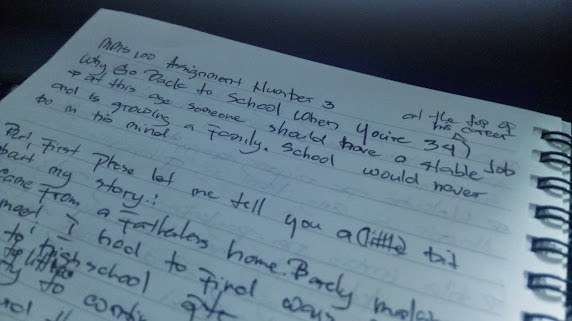 Assignment Number 3
Why Go Back to School when you're 34)
at the top of
his career
→ at this age someone should have a stable Job
and is growing a Family. School would never
be in his mind.
But, First please let me tell you a little bit
about my story:
came From a Fatherless home. Barely
I had to Find ways
to highschool
to